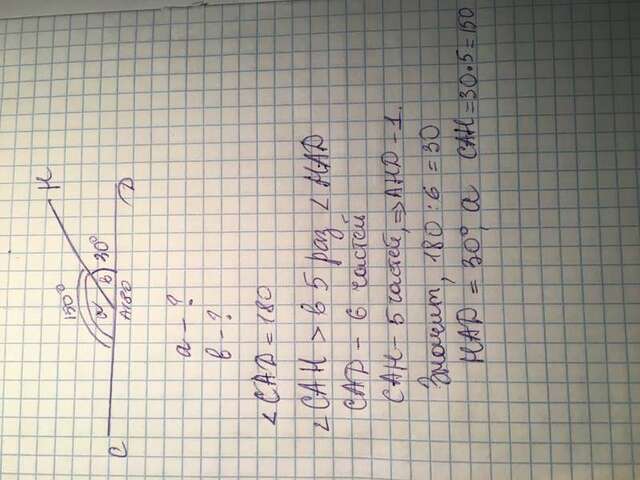 H
150°
a
b
30°
C
A180
D
a - ?
b - ?
∠CAD = 180
∠CAH > в 5 раз ∠HAD
CAD - 6 частей
CAH - 5 частей, ⇒ AHD - 1.
Значит, 180 : 6 = 30
HAD = 30°, а CAH = 30 • 5 = 150